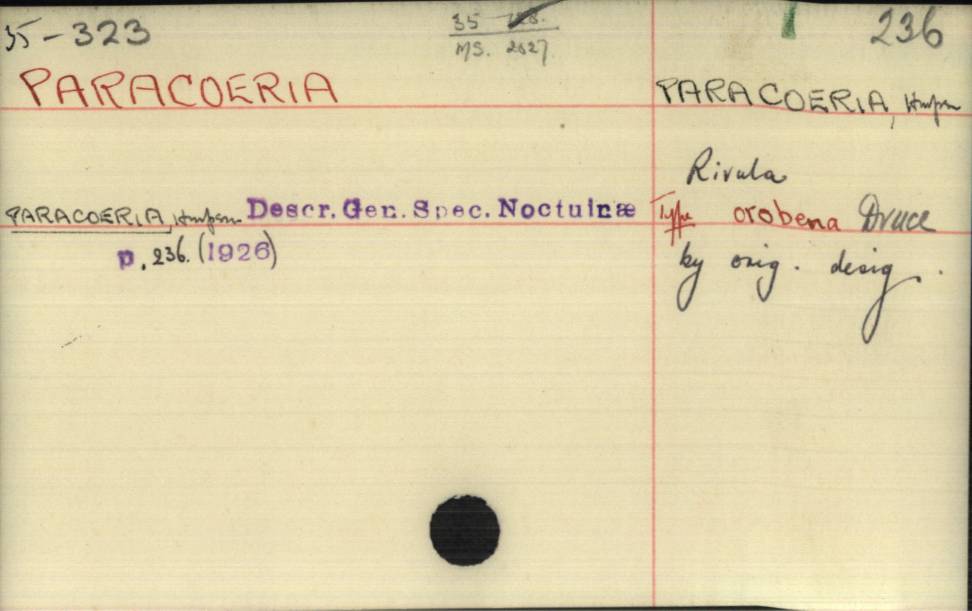 35-323
35
MS. 2627
236
PARACOERIA
PARACOERIA, Hmpsn
Rivula
PARACOERIA, Hmpsn Descr. Gen. Spec. Noctuinæ
p. 236. (1926)
Type orobena Druce
by orig. desig.